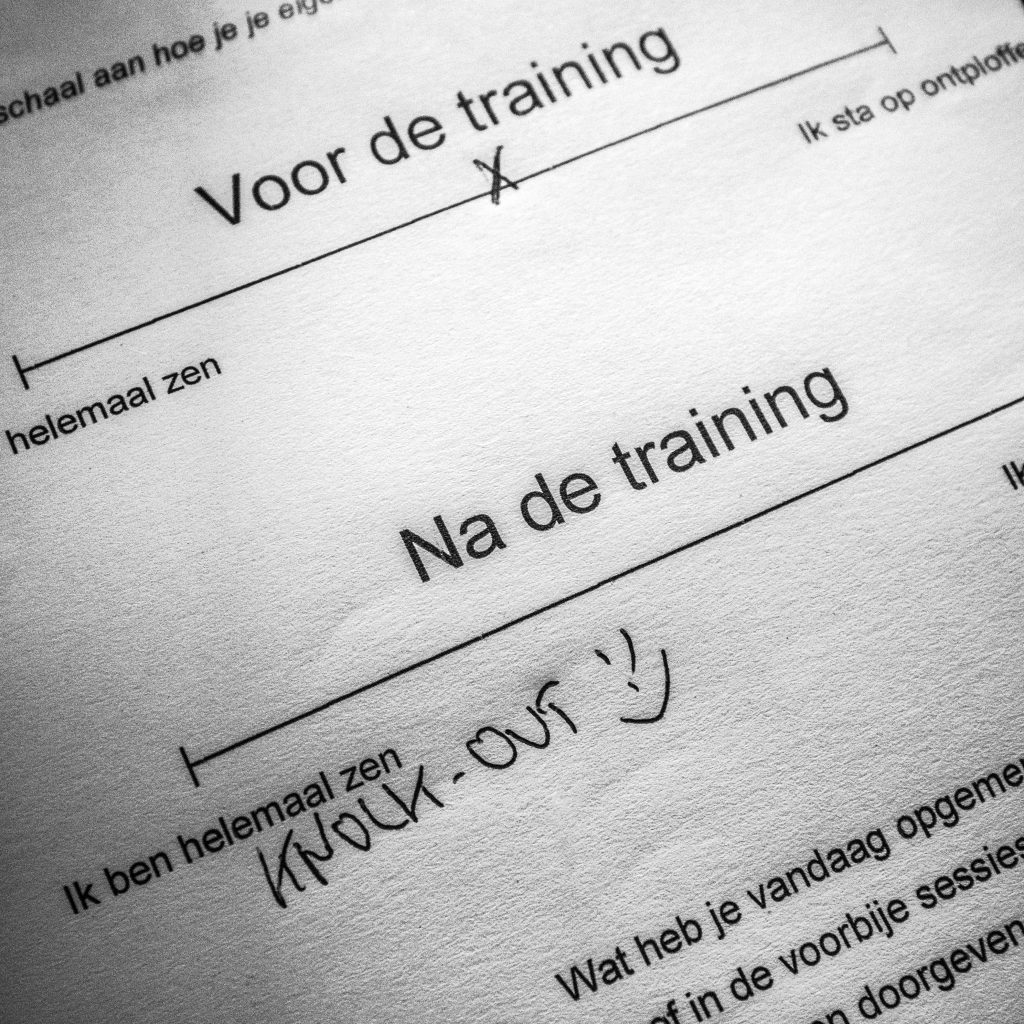 schaal aan hoe je je eige
Voor de training
X
Ik sta op ontploffe
helemaal zen
Na de training
Ik
Ik ben helemaal zen
KNOCK-OUT :)
Wat heb je vandaag opgemer
of in de voorbije sessies
en doorgeven